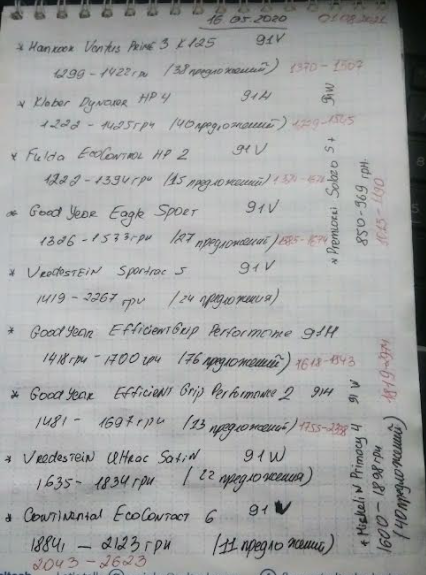 16 05.2020
* Hankook Ventus Prime 3 K125 91V
1299 - 1422 грн (38 предложений) 1370 - 1507
* Kleber Dynaxer HP 4 91H
1222 - 1425 грн (40 предложений)
* Fulda EcoControl HP 2 91V
1222 - 1394 грн (15 предложений)
* Good Year Eagle Sport 91V
1326 - 1533 грн (27 предложений)
* Vredestein Sportrac 5 91V
1419 - 2267 грн (24 предложения)
* Good Year EfficientGrip Performance 91H
1418 грн - 1700 грн (76 предложений) 1618-1943
* Good Year Efficient Grip Performance 2 91H
1481 - 1697 грн (13 предложений)
* Vredestein Ultrac Satin 91W
1635 - 1834 грн (22 предложения)
* Continental EcoContact 6 91V
1884 - 2123 грн (11 предложений)
2043 - 2623
* Premiorri Solazo S+ 91V
850-969 грн.
* Michelin Primacy 4 91V
1600 - 1898 грн
(40 предложений)